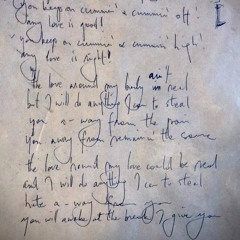 you keep on cummin' & cummin' oh!
my love is good!
you keep on cummin' & cummin' high!
my love is right!
the love around my body ain't real
but I will do anything I can to steal
you a-way from the pain
you away from remain in the same
the love round my love could be real
and I will do anything I can to steal
a-way from you
you will awake at the break I give you